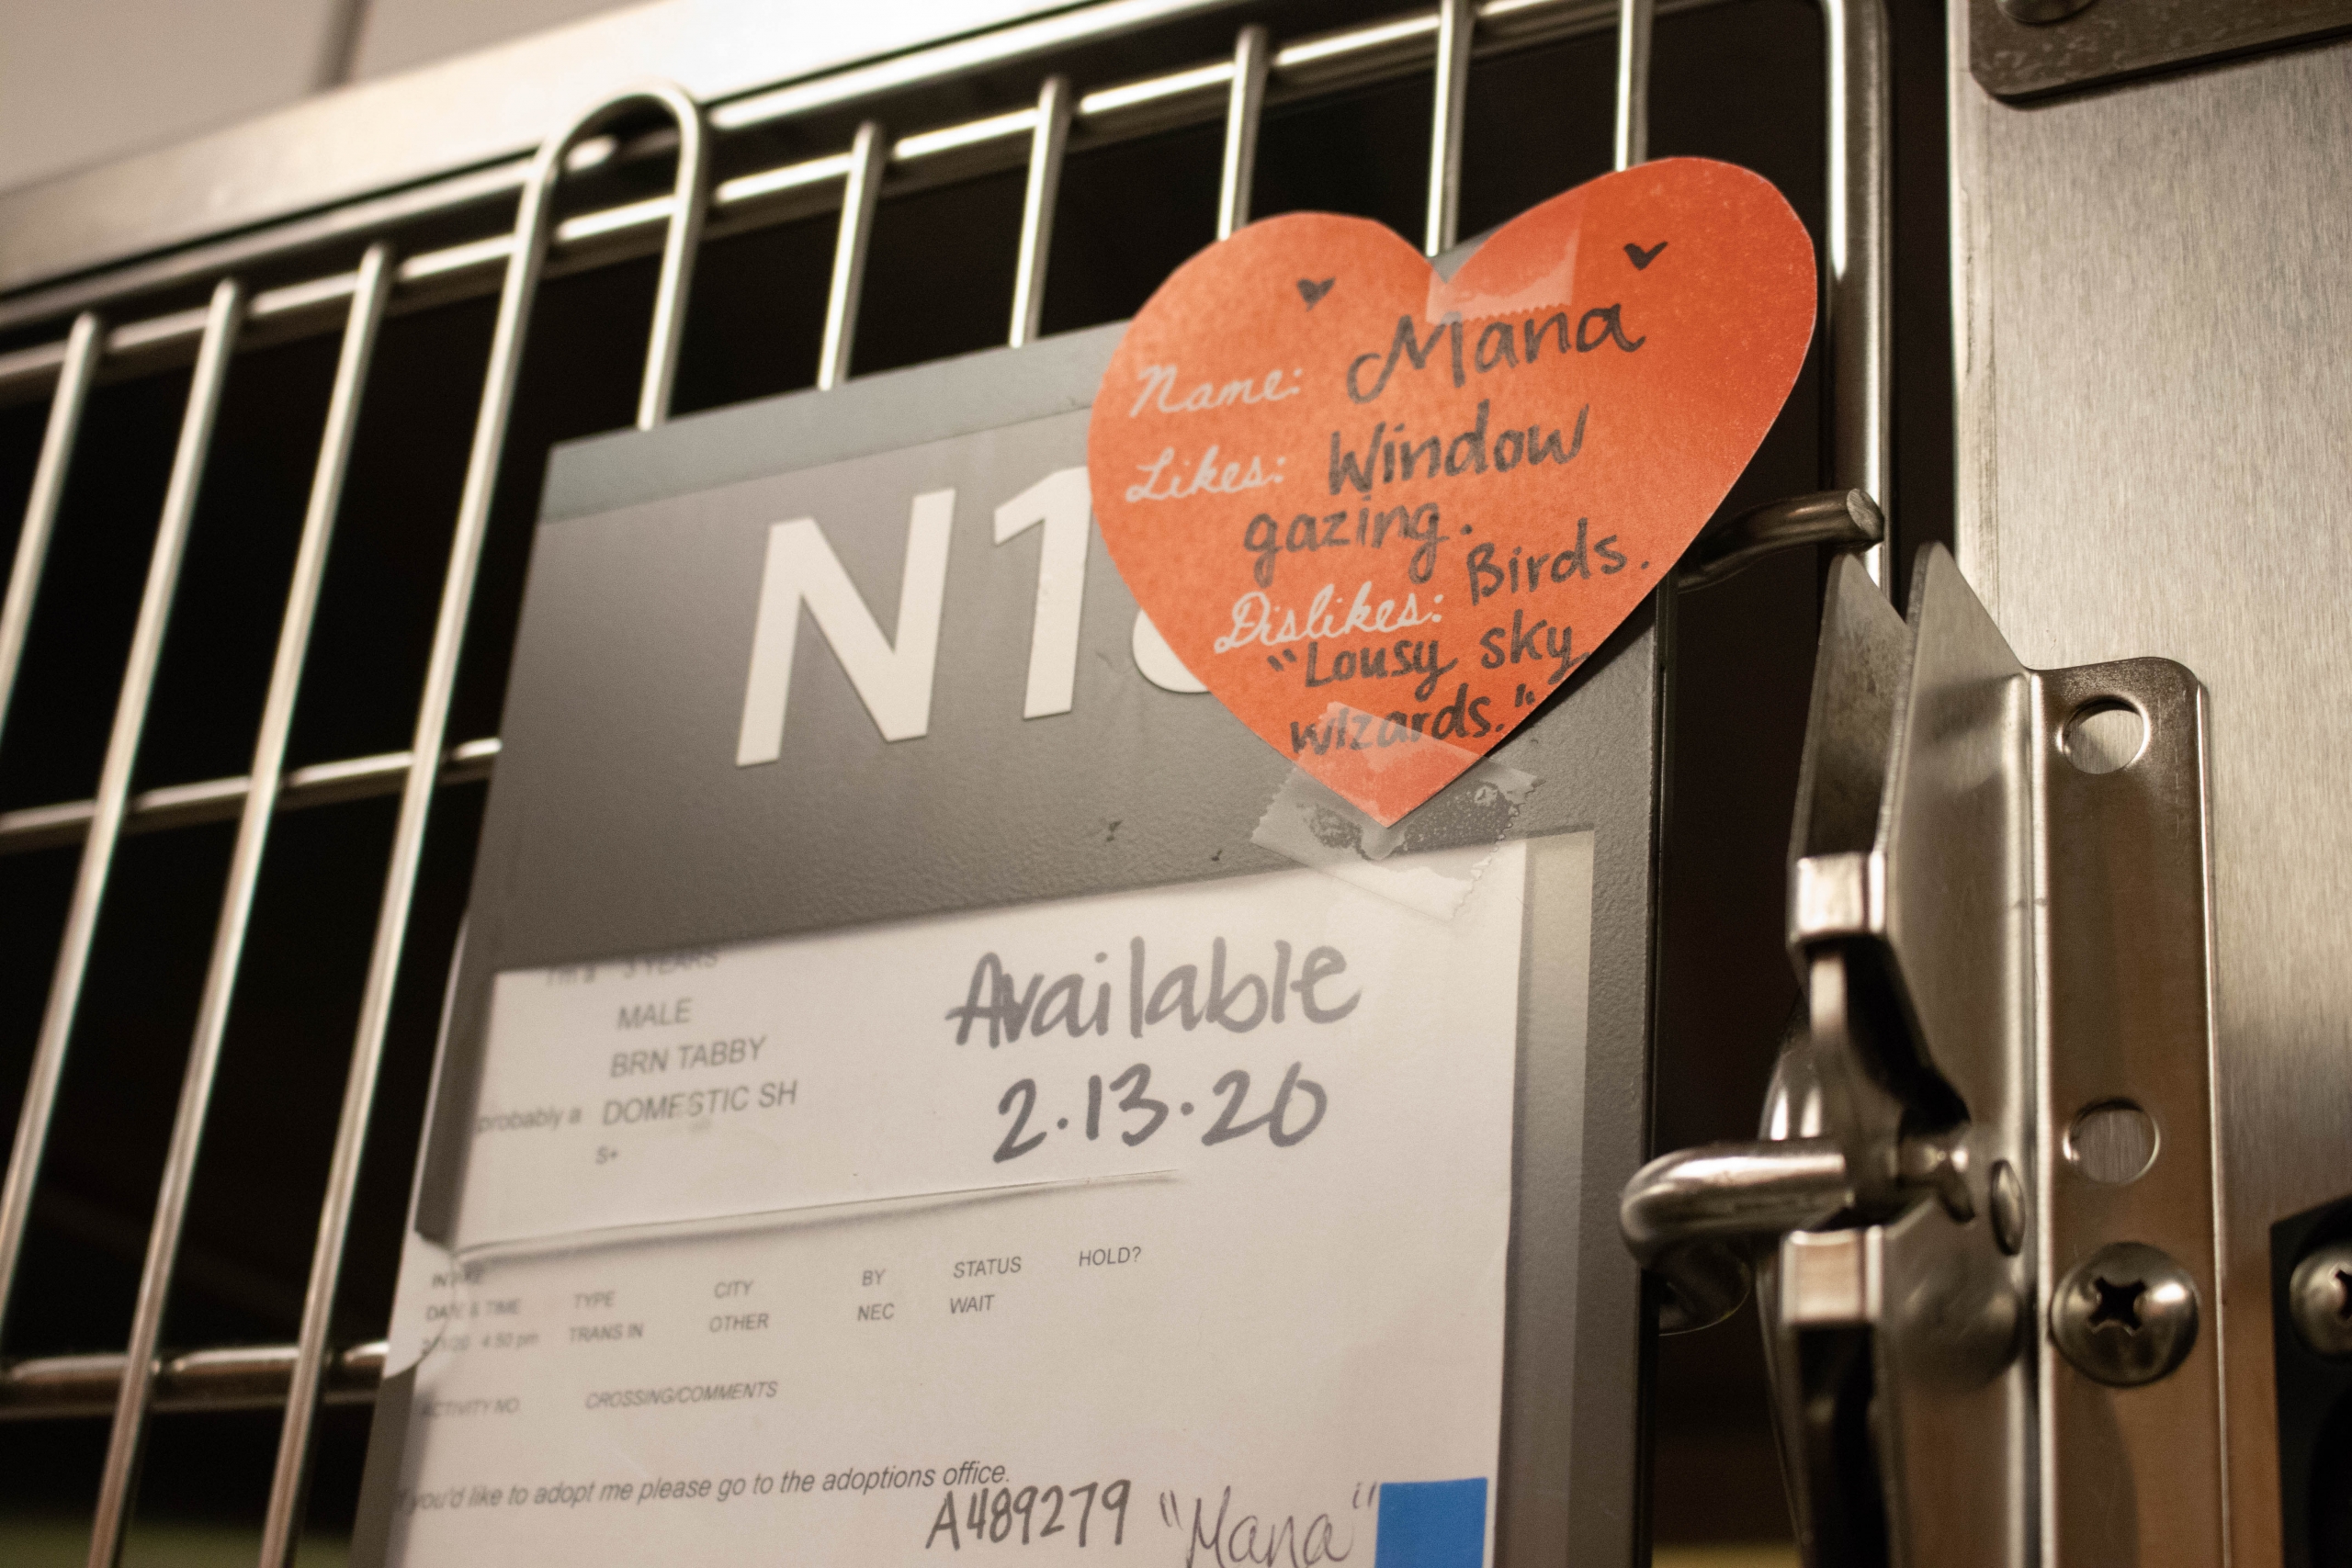 Name: Mana
Likes: Window
gazing.
Dislikes: Birds.
"Lousy sky
wizards."
I'm a 3 YEARS
MALE
BRN TABBY
probably a DOMESTIC SH
S+
Available
2.13.20
INTAKE
DATE & TIME TYPE CITY BY STATUS HOLD?
4:50 pm TRANS IN OTHER NEC WAIT
ACTIVITY NO. CROSSING/COMMENTS
If you'd like to adopt me please go to the adoptions office.
A489279 "Mana"